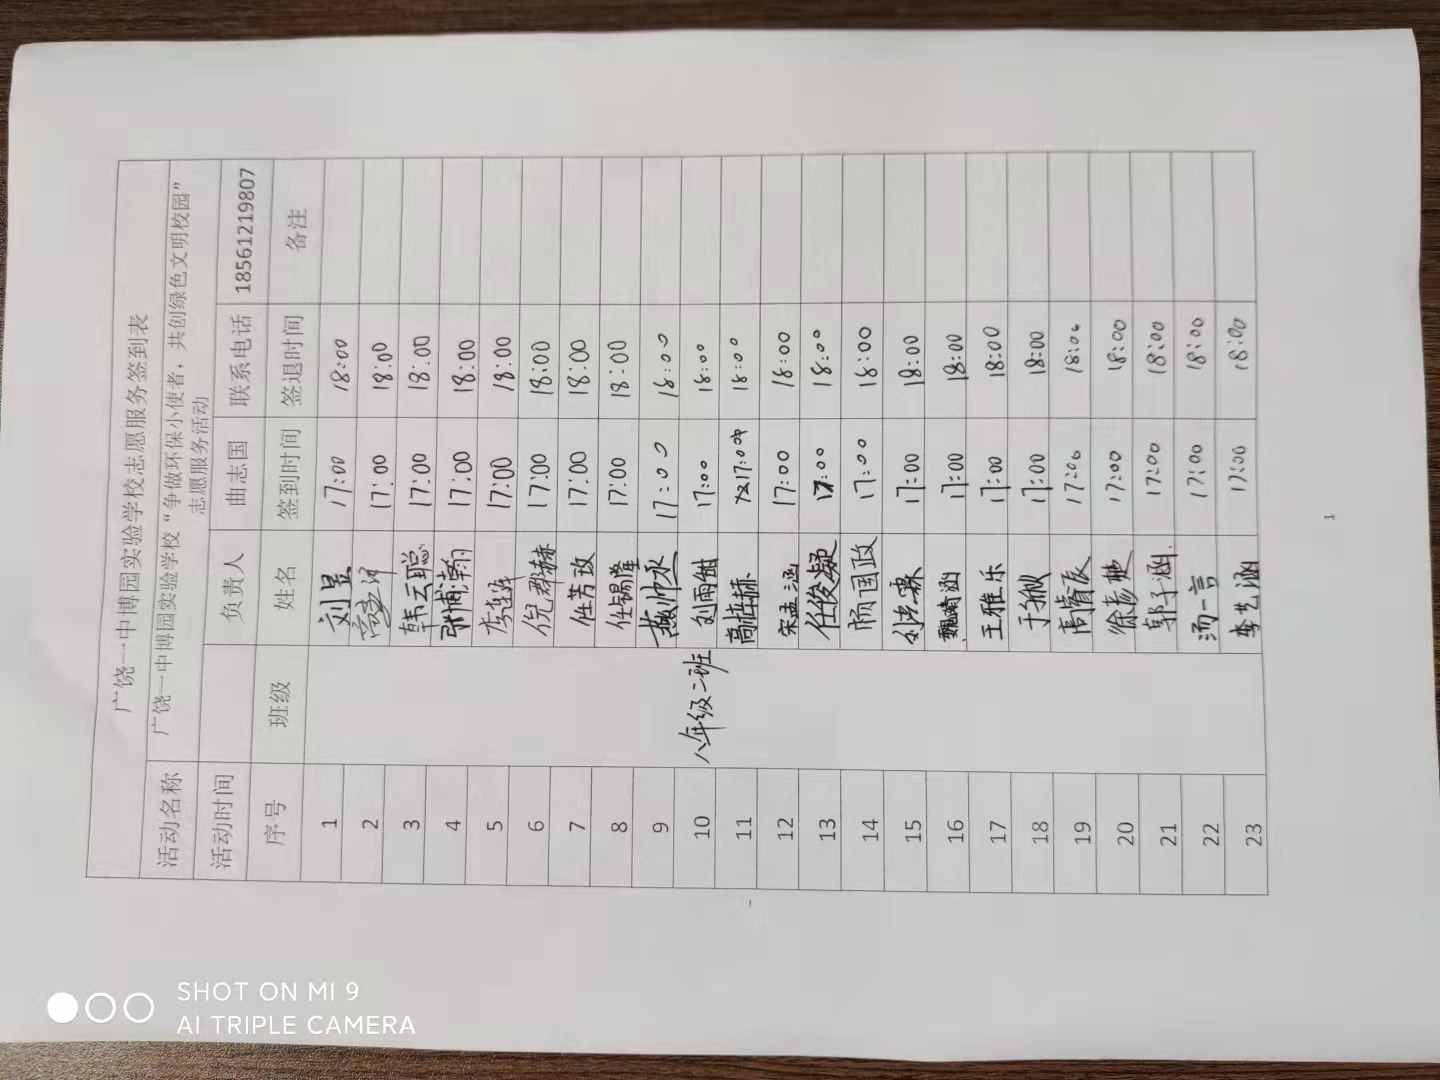 广饶一中博园实验学校志愿服务签到表
活动名称 广饶一中博园实验学校“争做环保小使者，共创绿色文明校园”
志愿服务活动
活动时间 负责人 曲志国 联系电话 18561219807
序号 班级 姓名 签到时间 签退时间 备注
八年级二班
1 刘昱 17:00 18:00
2 17:00 18:00
3 韩云聪 17:00 18:00
4 张博瀚 17:00 18:00
5 17:00 18:00
6 倪群赫 17:00 18:00
7 任芳玫 17:00 18:00
8 任锡隆 17:00 18:00
9 燕帅丞 17:00 18:00
10 刘雨甜 17:00 18:00
11 17:00 18:00
12 宋孟涵 17:00 18:00
13 任俊凝 17:00 18:00
14 杨国政 17:00 18:00
15 17:00 18:00
16 魏琦涵 17:00 18:00
17 王雅乐 17:00 18:00
18 17:00 18:00
19 高睿辰 17:00 18:00
20 徐彦楚 17:00 18:00
21 郭子涵 17:00 18:00
22 汤一言 17:00 18:00
23 李艺涵 17:00 18:00
1
SHOT ON MI 9
AI TRIPLE CAMERA